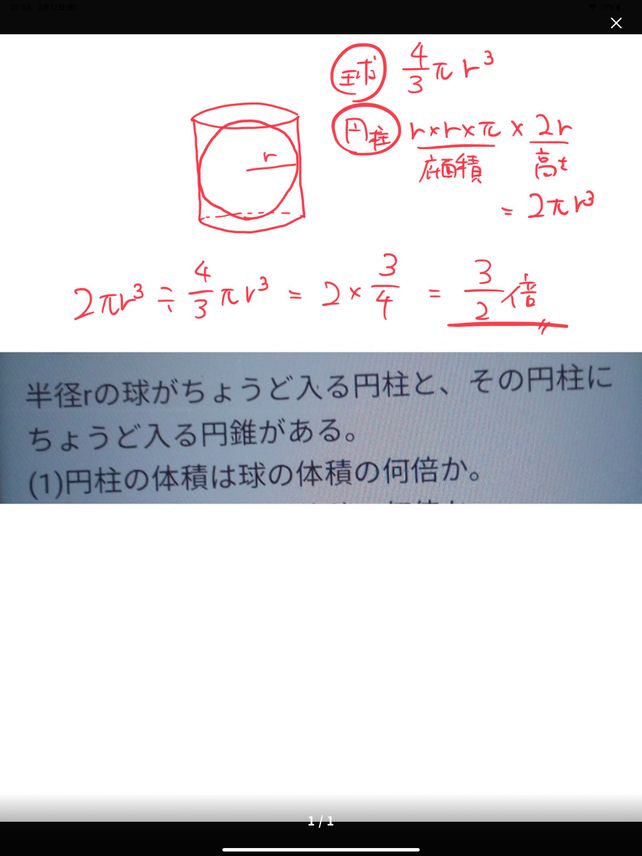 球 4/3 πr³
円柱 r×r×π × 2r
底面積 高さ
= 2πr³
r
2πr³ ÷ 4/3 πr³ = 2 × 3/4 = 3/2 倍
半径rの球がちょうど入る円柱と、その円柱に
ちょうど入る円錐がある。
(1)円柱の体積は球の体積の何倍か。
1 / 1